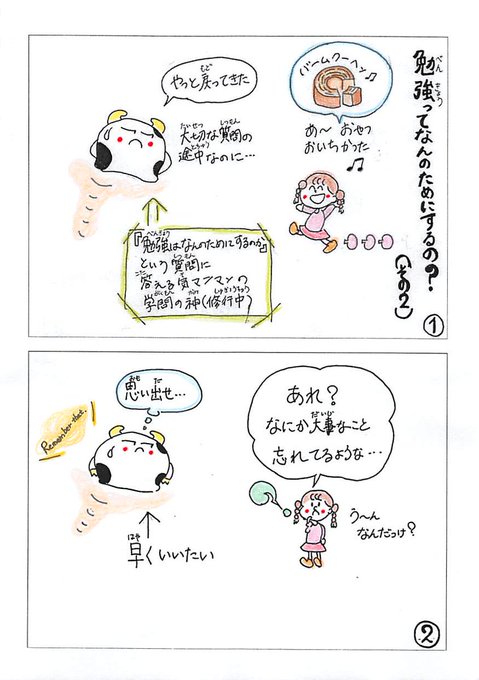 勉強ってなんのためにするの?
(その2)
バームクーヘン♫
あ〜 おやつ
おいちかった
やっと戻ってきた
大切な質問の
途中なのに…
『勉強はなんのためにするのか』
という質問に
答える気マンマンの
学問の神(修行中)
①
あれ?
なにか大事なこと
忘れてるような…
う〜ん
なんだっけ?
思い出せ…
Remember that.
早くいいたい
②